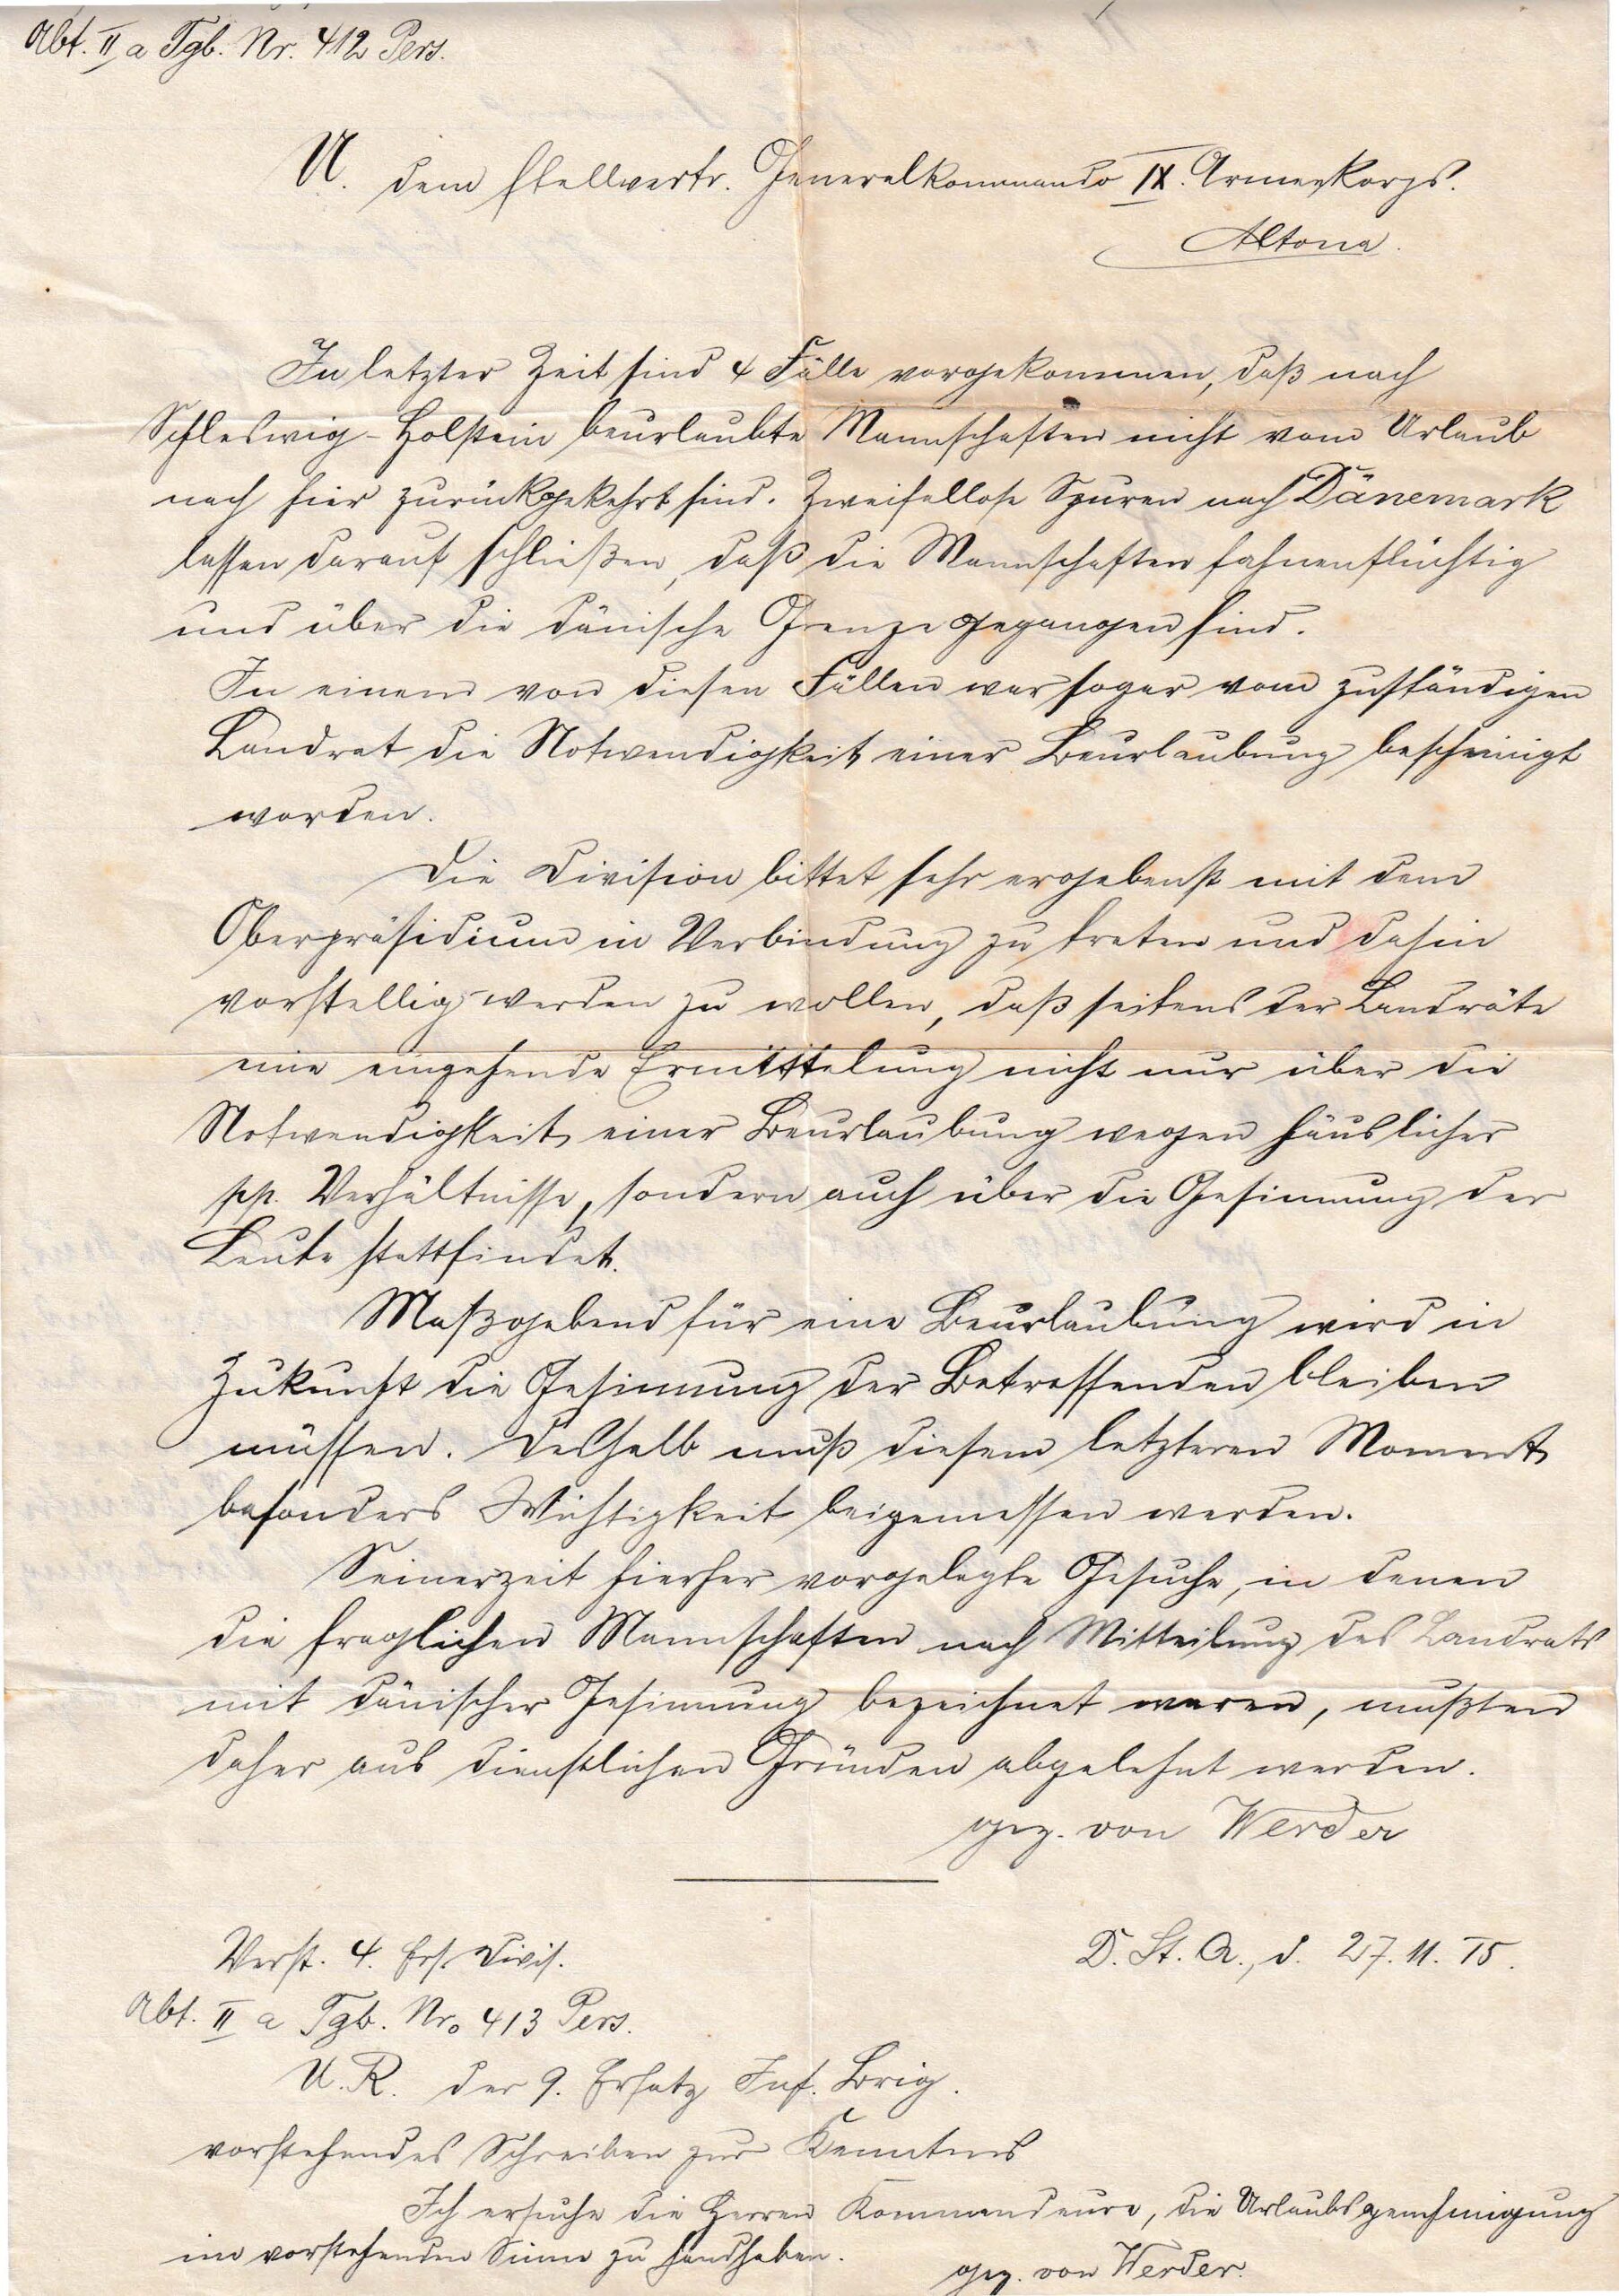 Abt. II a Tgb. Nr. 412 Pers.
U. dem stellvertr. Generalkommando IX. Armeekorps.
Altona.
In letzter Zeit sind 4 Fälle vorgekommen, daß nach
Schleswig-Holstein beurlaubte Mannschaften nicht vom Urlaub
nach hier zurückgekehrt sind. Zweifellose Spuren nach Dänemark
lassen darauf schließen, daß die Mannschaften fahnenflüchtig
und über die dänische Grenze gegangen sind.
In einem von diesen Fällen war sogar vom zuständigen
Landrat die Notwendigkeit einer Beurlaubung bescheinigt
worden.
Die Division bittet sehr ergebenst mit dem
Oberpräsidium in Verbindung zu treten und dahin
vorstellig werden zu wollen, daß seitens der Landräte
eine eingehende Ermittelung nicht nur über die
Notwendigkeit einer Beurlaubung wegen häuslicher
pp. Verhältnisse, sondern auch über die Gesinnung der
Leute stattfindet.
Maßgebend für eine Beurlaubung wird in
Zukunft die Gesinnung der Betreffenden bleiben
müssen. Deshalb muß diesem letzteren Moment
besonders Wichtigkeit beigemessen werden.
Seinerzeit hierher vorgelegte Gesuche, in denen
die fraglichen Mannschaften nach Mitteilung des Landrats
mit dänischer Gesinnung bezeichnet waren, mußten
daher aus dienstlichen Gründen abgelehnt werden.
gez. von Werder
Verst. 4. Ers. Divis.
D. St. Q., d. 27. 11. 15.
Abt. II a Tgb. Nr. 413 Pers.
U. R. der 9. Ersatz Inf. Brig.
vorstehendes Schreiben zur Kenntnis
Ich ersuche die Herren Kommandeure, die Urlaubsgenehmigung
im vorstehenden Sinne zu handhaben.
gez. von Werder.